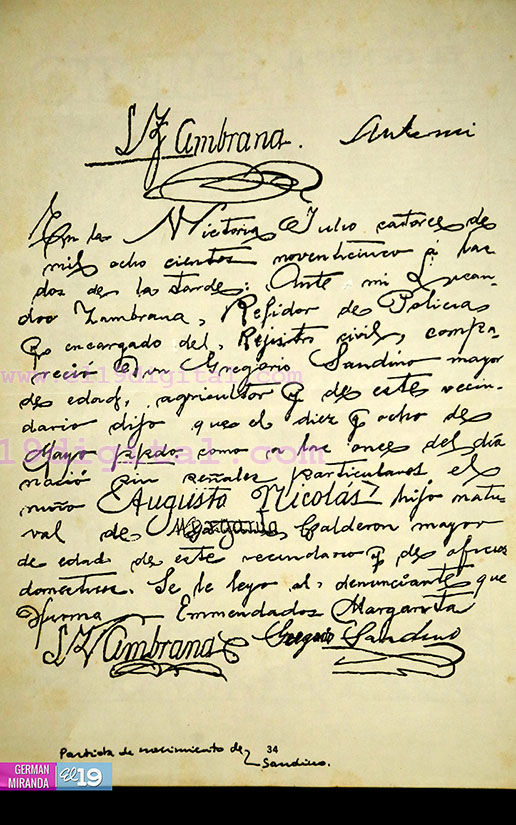 L Zambrana. Antemi
En la Victoria Julio catorce de
mil ocho cientos noventicinco á las
dos de la tarde: Ante mi Lican-
dro Zambrana, Rejidor de Policia
y encargado del Rejistro civil, compa-
reció Don Gregorio Sandino mayor
www.el19digital.com
de edad, agricultor y de este vecin-
dario dijo que el diez y ocho de
19digital.com
Mayo ppdo. como a las once del día
nació sin señales particulares el
niño Augusto Nicolás hijo natu-
ral de Margarita Calderon mayor
de edad de este vecindario y de oficios
domesticos. Se le leyo al denunciante que
firma Enmendados Margarita
L Zambrana Gregorio Sandino
Partida de nacimiento de 34
Sandino.
GERMAN
MIRANDA
El 19